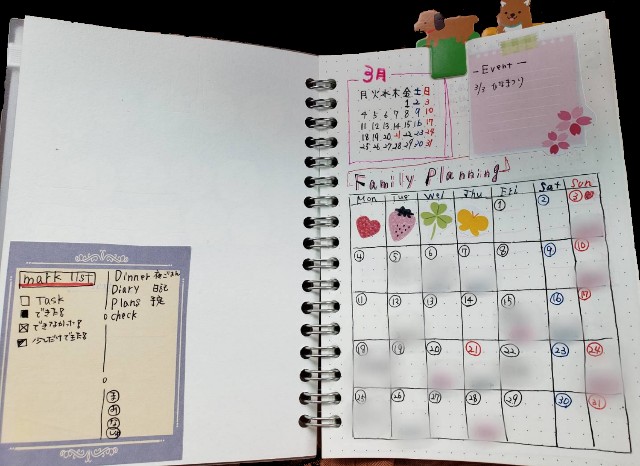 mark list
□ Task
■ できた8
☒ できなかった8
少しだけできた8
Dinner 夜ごはん
Diary 日記
Plans 予定
check
ま
み
な
3月
月 火 水 木 金 土 日
1 2 3
4 5 6 7 8 9 10
11 12 13 14 15 16 17
18 19 20 21 22 23 24
25 26 27 28 29 30 31
- Event -
3/3 ひなまつり
Family Planning♪
Mon Tue Wed Thu Fri Sat Sun
① ② ③
④ ⑤ ⑥ ⑦ ⑧ ⑨ ⑩
⑪ ⑫ ⑬ ⑭ ⑮ ⑯ ⑰
⑱ ⑲ ⑳ ㉑ ㉒ ㉓ ㉔
㉕ ㉖ ㉗ ㉘ ㉙ ㉚ ㉛